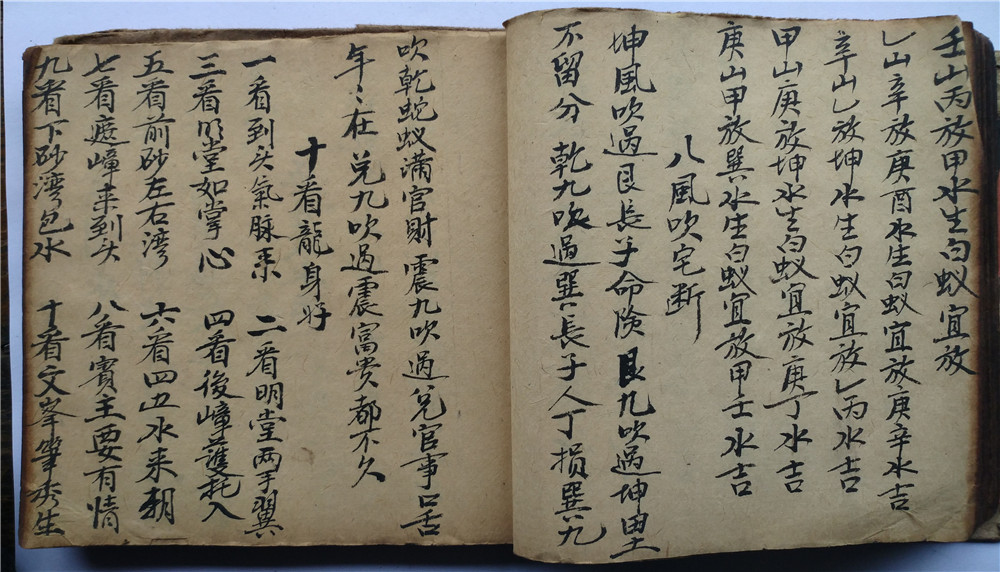 壬山丙放甲水生白蚁宜放
乚山辛放庚酉水生白蚁宜放庚辛水吉
辛山乚放坤水生白蚁宜放乚丙水吉
甲山庚放坤水生白蚁宜放庚丁水吉
庚山甲放巽水生白蚁宜放甲壬水吉
八風吹宅断
坤風吹過艮長子命険艮九吹過坤田里
不留分 乾九吹過巽長子人丁損巽九
吹乾蛇蚁满官財 震九吹過兑官事口舌
年〻在 兑九吹過震富贵都不久
十看龍身好
一看到头氣脉来 二看明堂两手翼
三看明堂如掌心 四看後嶂護托入
五看前砂左右湾 六看四山水来朝
七看遮嶂来到头 八看賓主要有情
九看下砂湾包水 十看文峯筆秀生